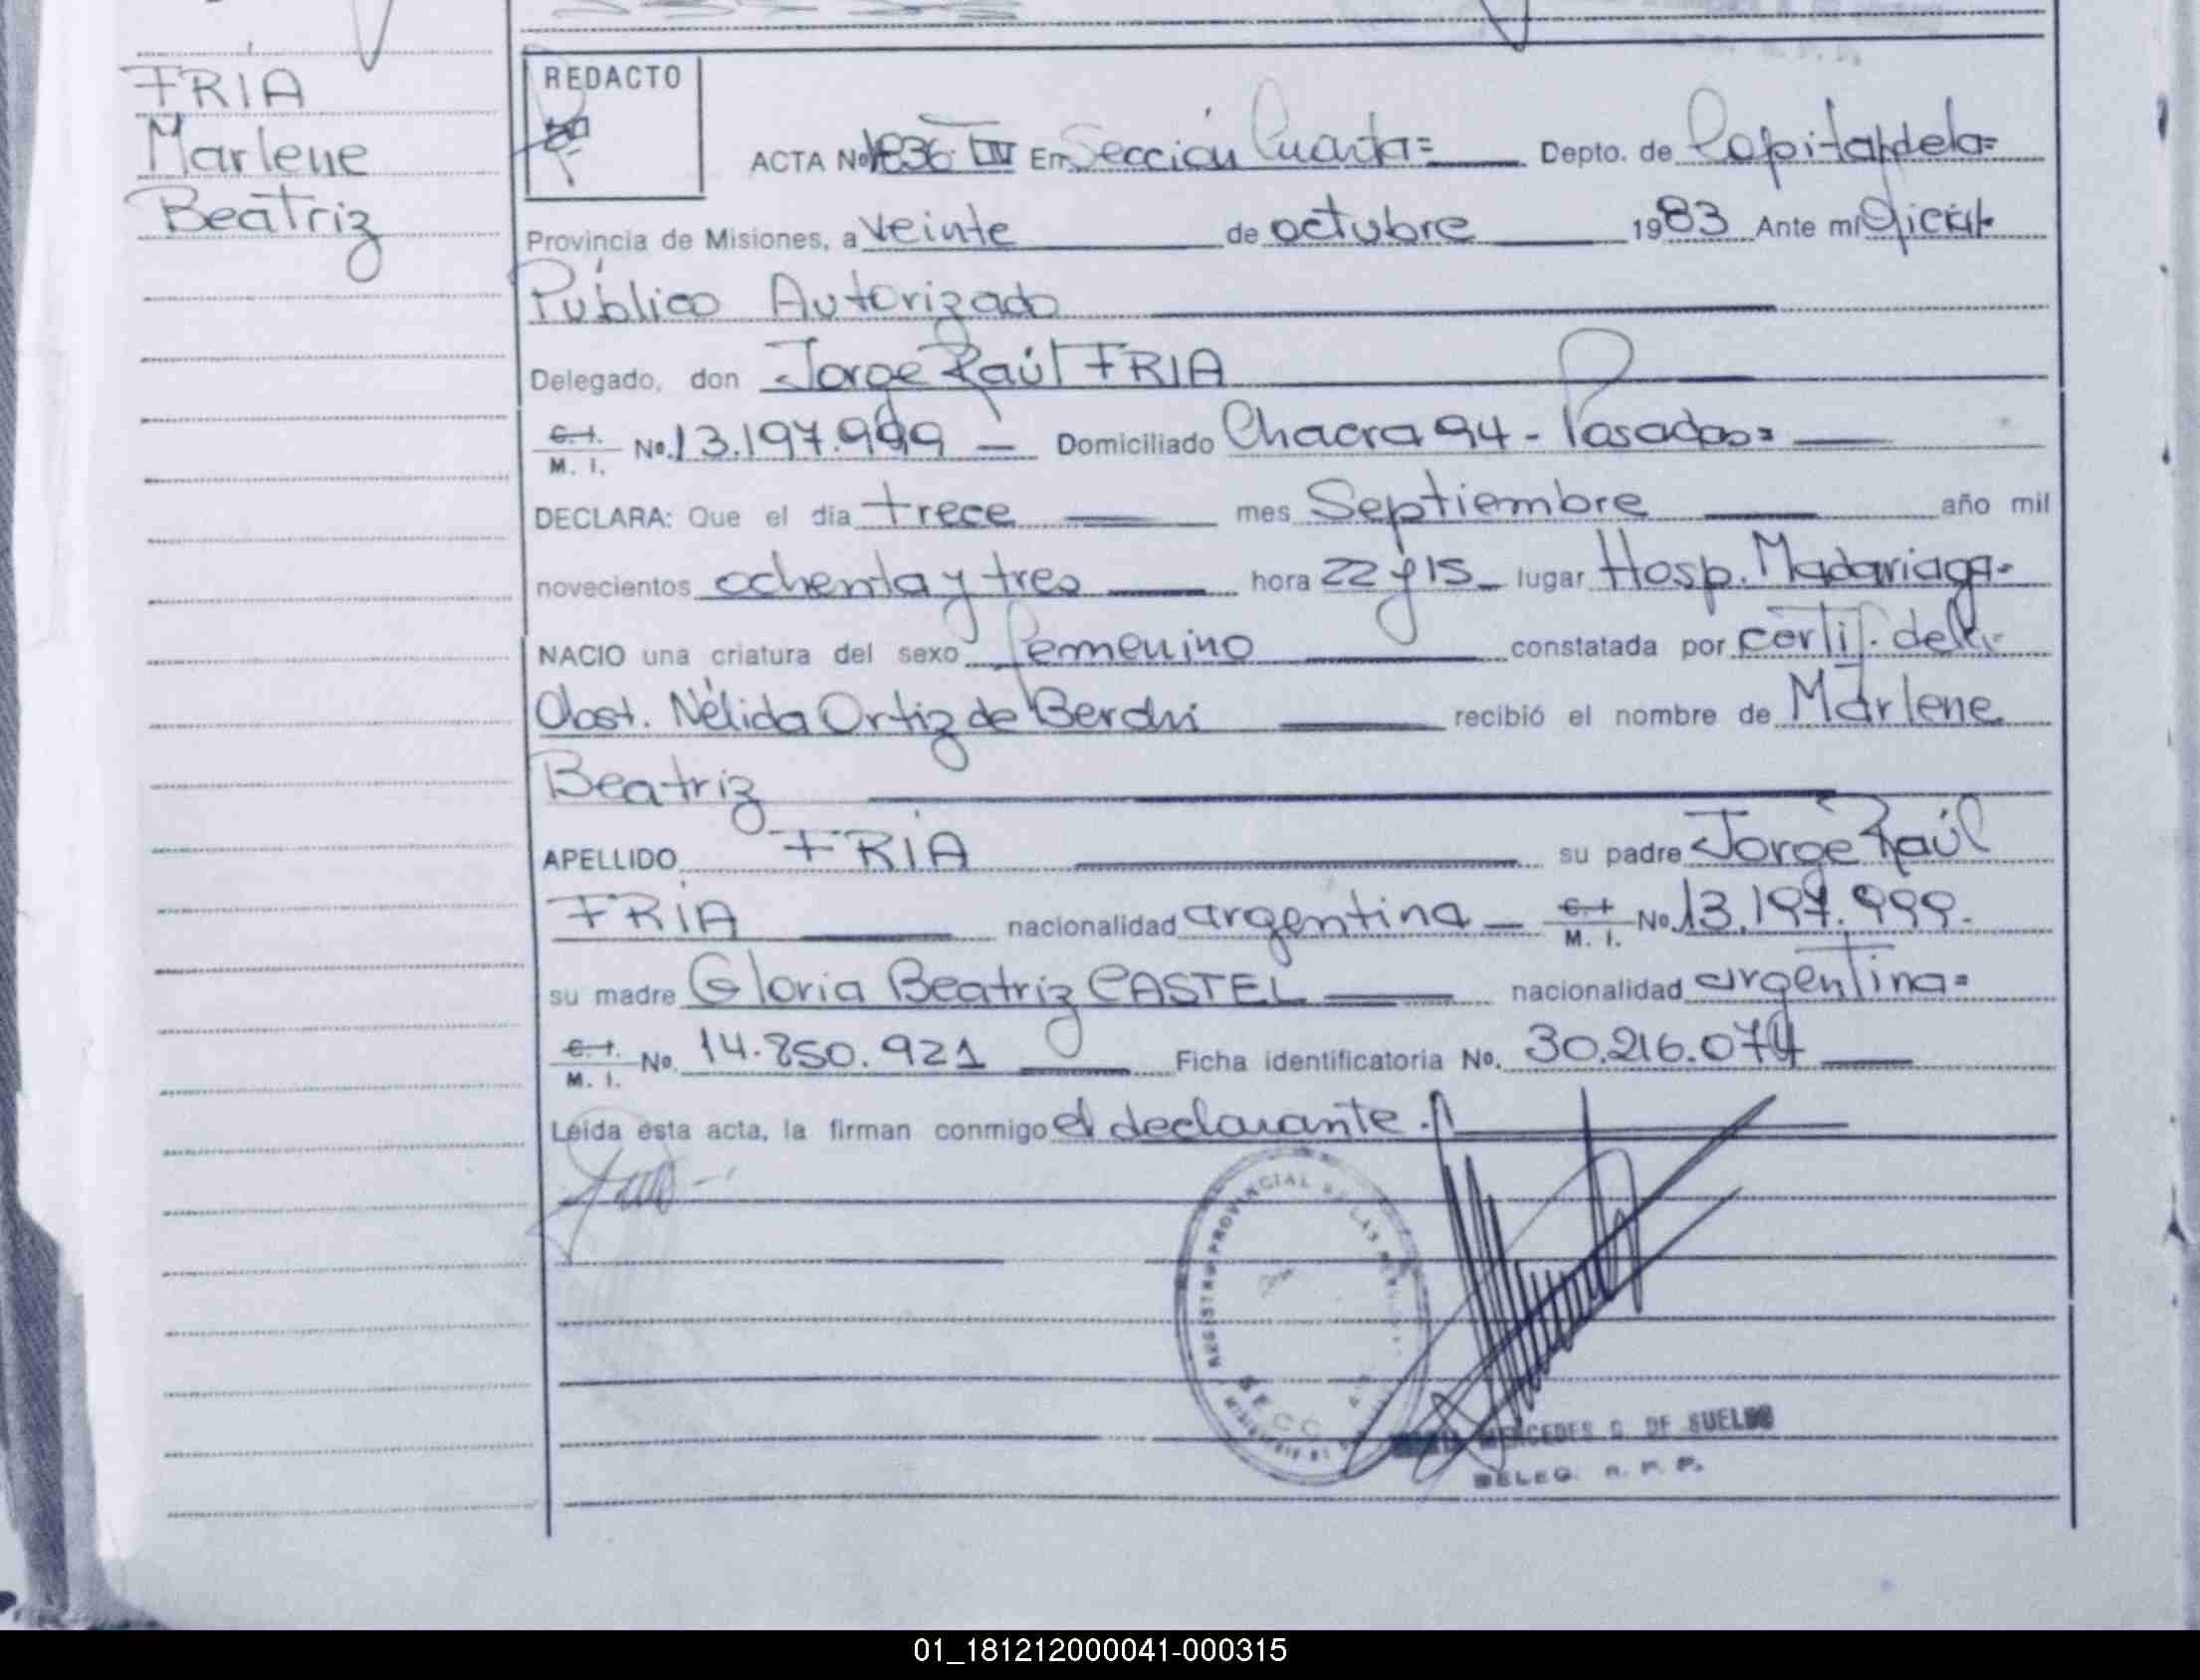 FRIA
Marlene
Beatriz
REDACTO
ACTA No 1836 TIV En Sección Cuarta = Depto. de Capital de la =
Provincia de Misiones, a veinte de octubre 1983 Ante mi Oficial
Público Autorizado
Delegado, don Jorge Raúl FRIA
C.I. M. I. No. 13.197.999 — Domiciliado Chacra 94 - Posadas =
DECLARA: Que el día trece mes Septiembre año mil
novecientos ochenta y tres hora 22 y 15 — lugar Hosp. Madariaga -
NACIO una criatura del sexo femenino constatada por certif. de
Obst. Nélida Ortiz de recibió el nombre de Marlene
Beatriz
APELLIDO FRIA su padre Jorge Raúl
FRIA nacionalidad argentina — C.I. M. I. No. 13.197.999.
su madre Gloria Beatriz CASTEL nacionalidad argentina =
C.I. M. I. No. 14.850.921 Ficha identificatoria No. 30.216.074
Leída esta acta, la firman conmigo el declarante.
REGISTRO PROVINCIAL DE LAS PERSONAS
SECC
MERCEDES G. DE SUELDO
DELEG. R. P. P.
01_181212000041-000315